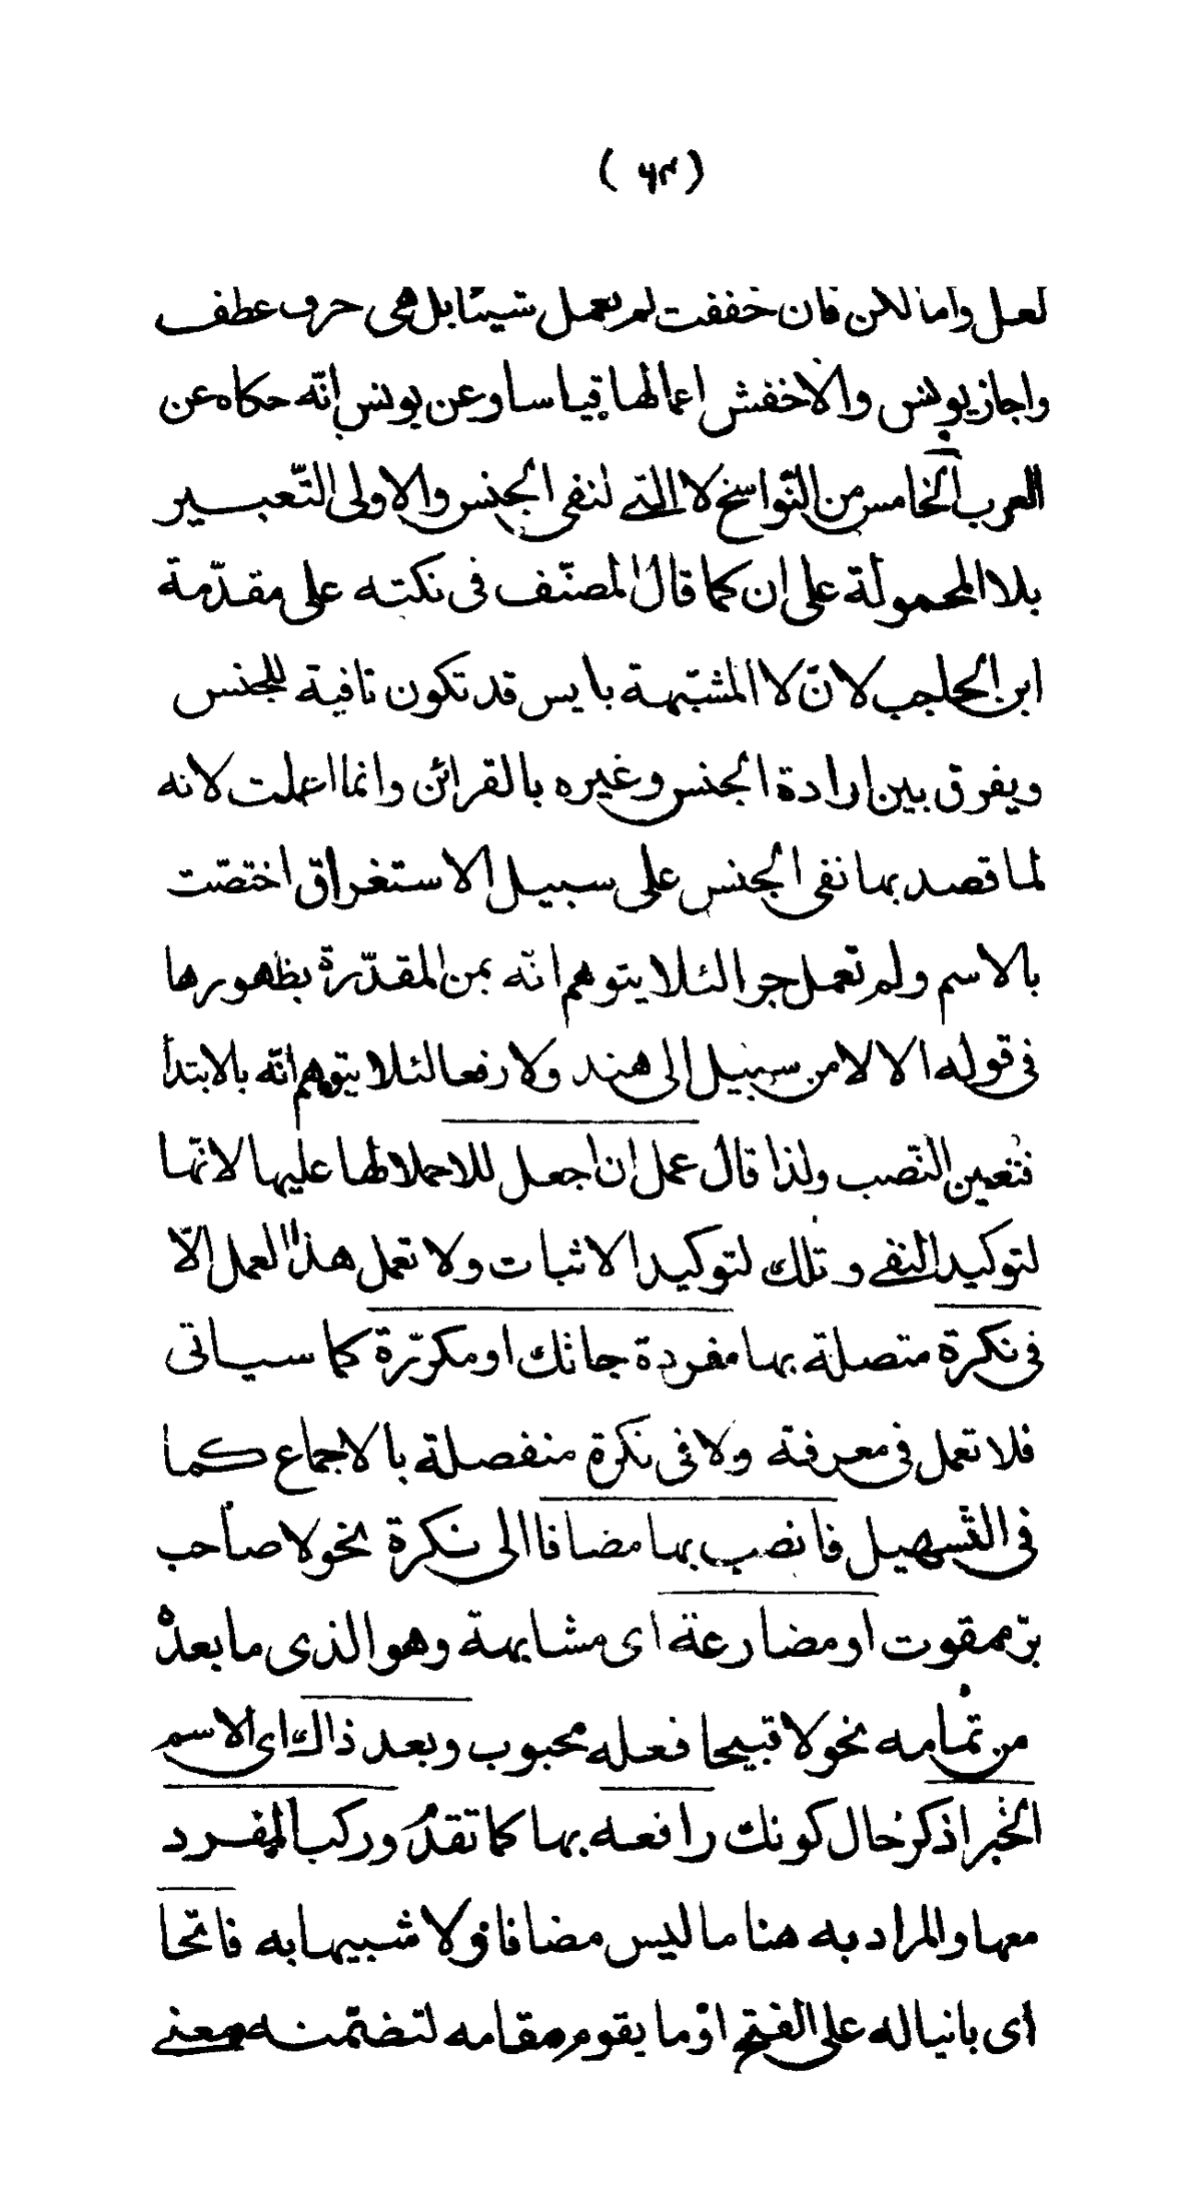 ( ٦٣ )
لعل واما لكن فان خففت لم تعمل شيئا بل هى حرف عطف
واجاز يونس والاخفش اعمالها قياسا وعن يونس انّه حكاه عن
العرب الخامس من النّواسخ لا الّتى لنفى الجنس والاولى التّعبير
بلا المحمولة على ان كما قال المصنّف فى نكته على مقدّمة
ابن الحاجب لانّ لا المشبّهة بليس قد تكون نافية للجنس
ويفرق بين ارادة الجنس وغيره بالقرائن وانما اعملت لانه
لما قصد بها نفى الجنس على سبيل الاستغراق اختصّت
بالاسم ولم تعمل جرا لئلا يتوهم انّه بمن المقدّرة بظهورها
فى قوله الا لا من سبيل الى هند ولا رفعا لئلا يتوهم انّه بالابتدأ
فتعين النّصب ولذا قال عمل ان اجعل للا حملا لها عليها لانّها
لتوكيد النفى وتلك لتوكيد الاثبات ولا تعمل هذا العمل الّا
فى نكرة متصلة بها مفردة جائتك او مكرّرة كما سياتى
فلا تعمل فى معرفة ولا فى نكرة منفصلة بالاجماع كما
فى التّسهيل فانصب بها مضافا الى نكرة نحو لا صاحب
برّ ممقوت او مضارعة اى مشابهة وهو الذى ما بعده
من تمامه نحو لا قبيحا فعله محبوب وبعد ذاك اى الاسم
الخبر اذكر حال كونك رافعه بها كما تقدّم وركب المفرد
معها والمراد به هنا ما ليس مضافا ولا شبيها به فاتحا
اى بانيا له على الفتح او ما يقوم مقامه لتضمّنه معنى